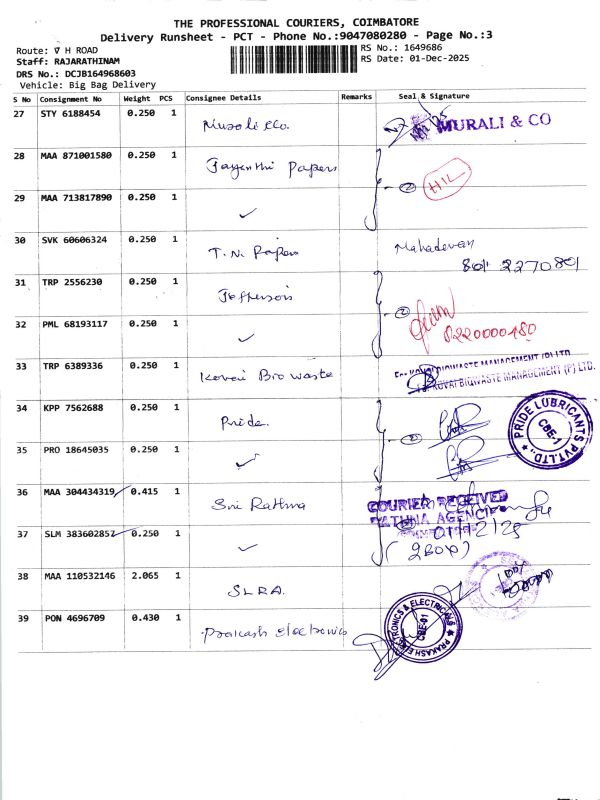 THE PROFESSIONAL COURIERS, COIMBATORE
Delivery Runsheet - PCT - Phone No.:9047080280 - Page No.:3
Route: V H ROAD
RS No.: 1649686
Staff: RAJARATHINAM
RS Date: 01-Dec-2025
DRS No.: DCJB164968603
Vehicle: Big Bag Delivery
S No Consignment No Weight PCS Consignee Details Remarks Seal & Signature
27 STY 6188454 0.250 1 Murali & Co. MURALI & CO
28 MAA 871001580 0.250 1 Jayanthi Papers 2 HIL
29 MAA 713817890 0.250 1 ✓
30 SVK 60606324 0.250 1 T.N. Papers Mahadevan
801 2270801
31 TRP 2556230 0.250 1 Jefferson 2
32 PML 68193117 0.250 1 ✓ 8220000480
33 TRP 6389336 0.250 1 Kovai Bio waste For KOVAI BIOWASTE MANAGEMENT (P) LTD.
For KOVAI BIOWASTE MANAGEMENT (P) LTD.
34 KPP 7562688 0.250 1 Pride. 2 PRIDE LUBRICANTS PVT.LTD., CBE-1
35 PRO 18645035 0.250 1 ✓
36 MAA 304434319 0.415 1 Sri Rathna COURIER RECEIVED
RATHNA AGENCI
37 SLM 383602857 0.250 1 ✓ 01/12/25
(2BOX)
38 MAA 110532146 2.065 1 SLRA.
39 PON 4696709 0.430 1 Prakash Electronics PRAKASH ELECTRONICS & ELECTRICALS CBE-01